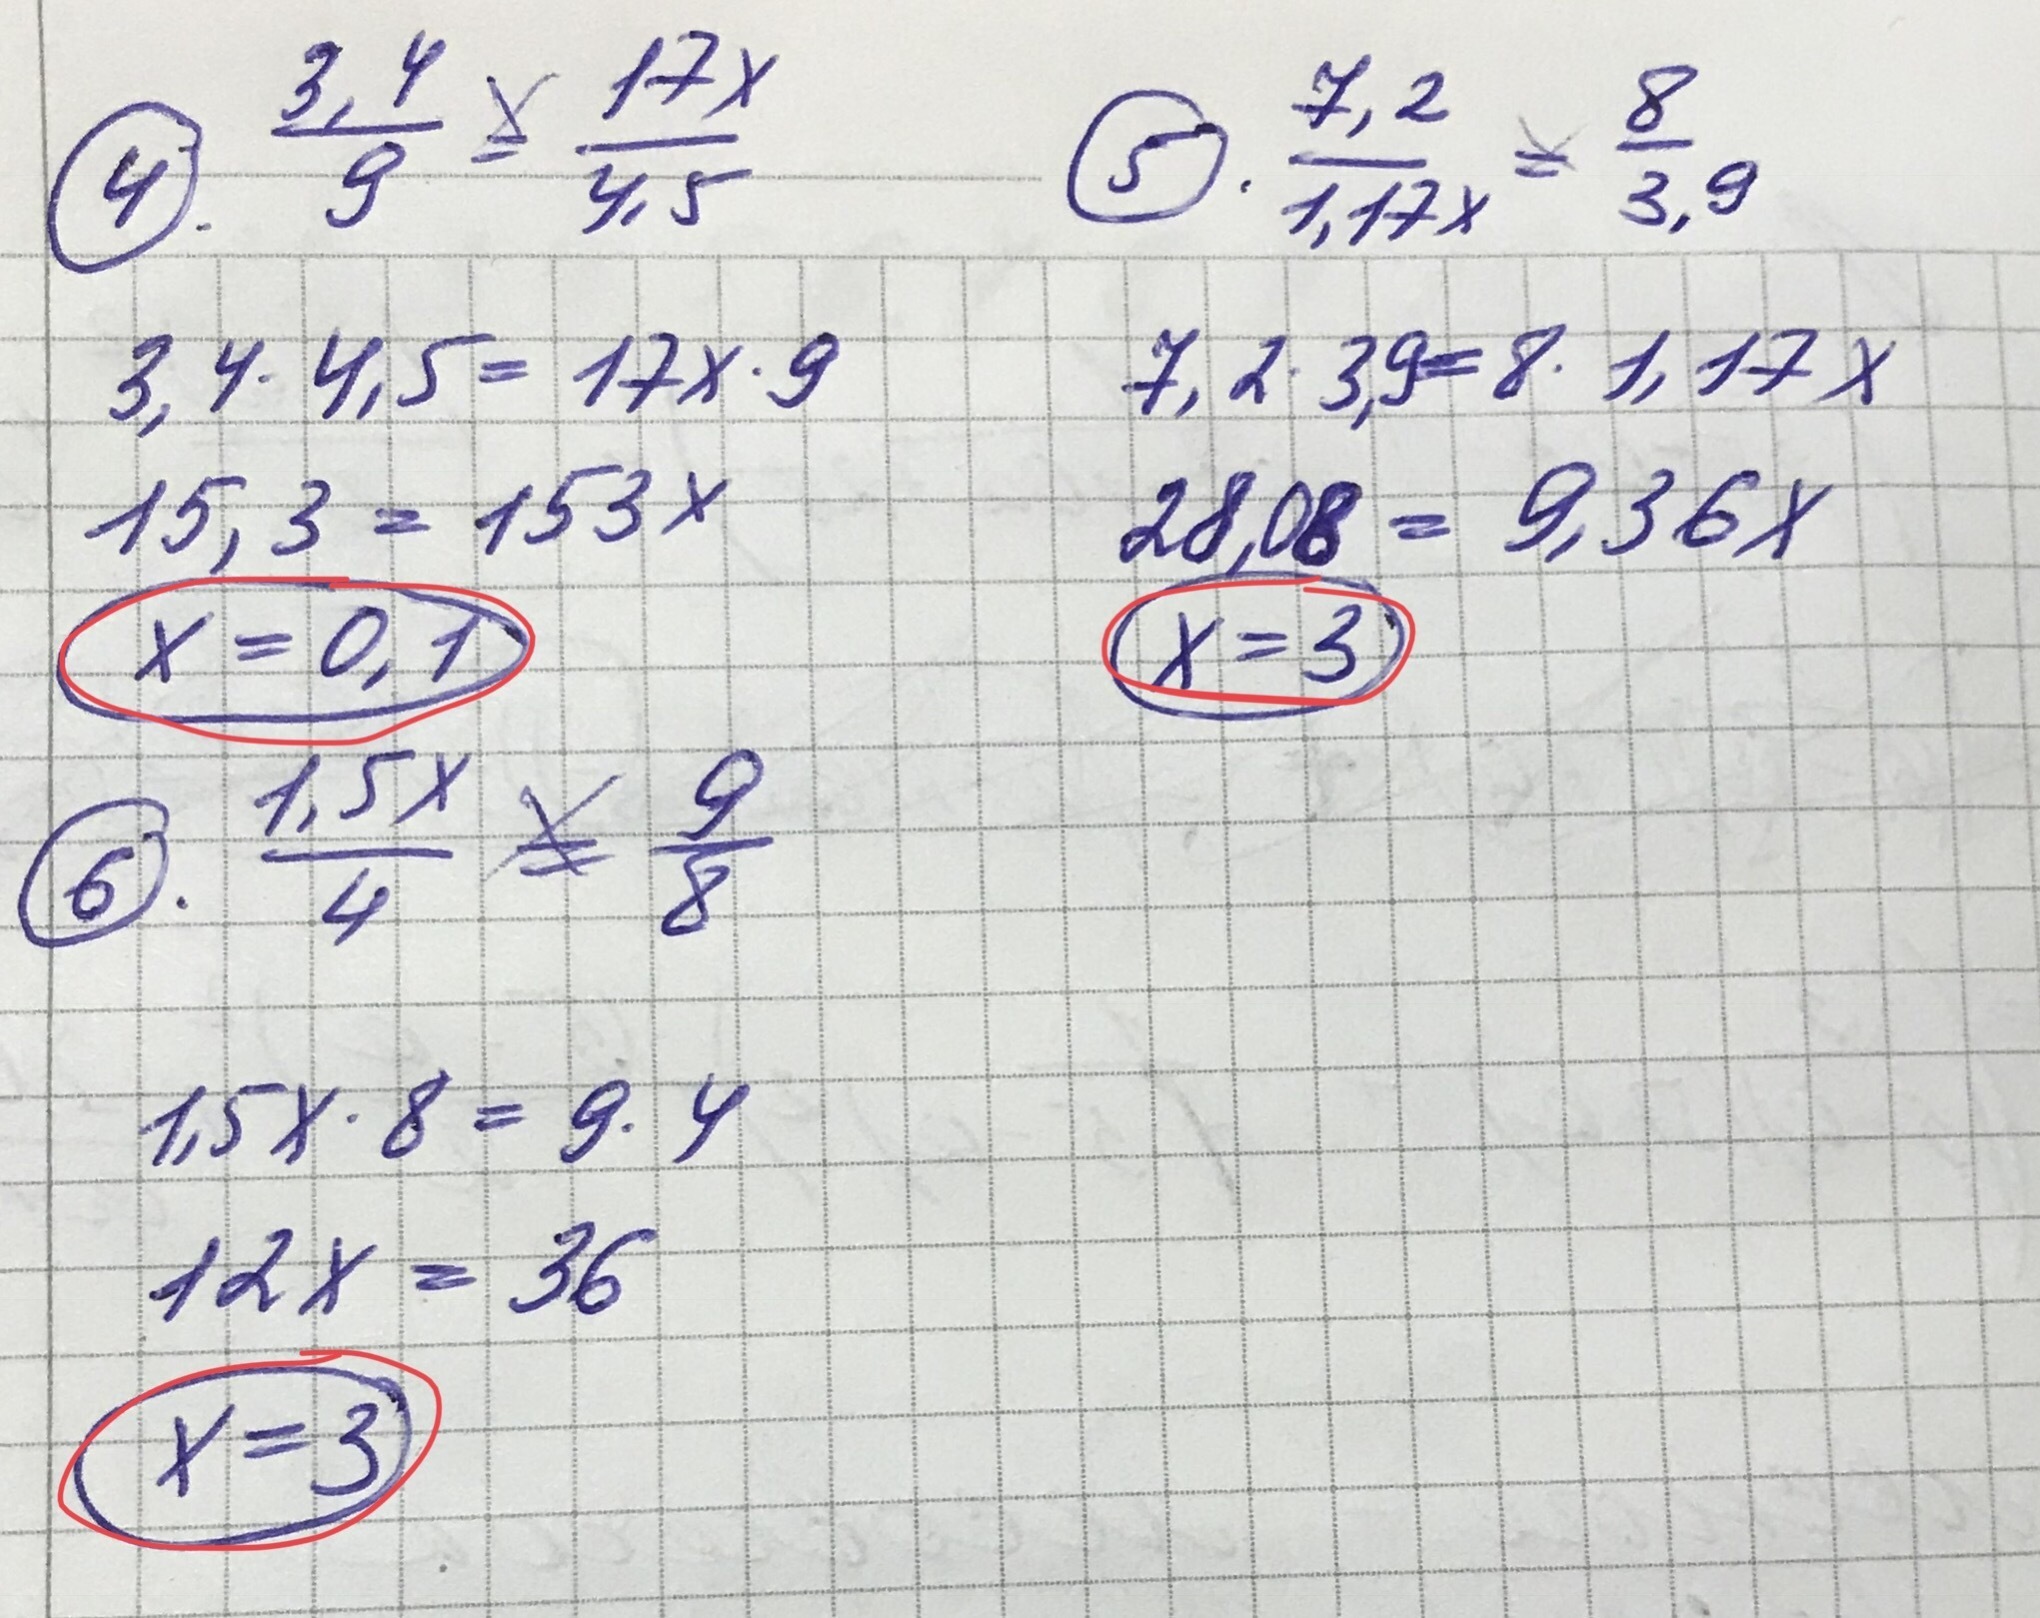 4. 3,4/9 = 17x/4,5
3,4 · 4,5 = 17x · 9
15,3 = 153x
x = 0,1
5. 7,2/1,17x = 8/3,9
7,2 · 3,9 = 8 · 1,17x
28,08 = 9,36x
x = 3
6. 1,5x/4 = 9/8
1,5x · 8 = 9 · 4
12x = 36
x = 3